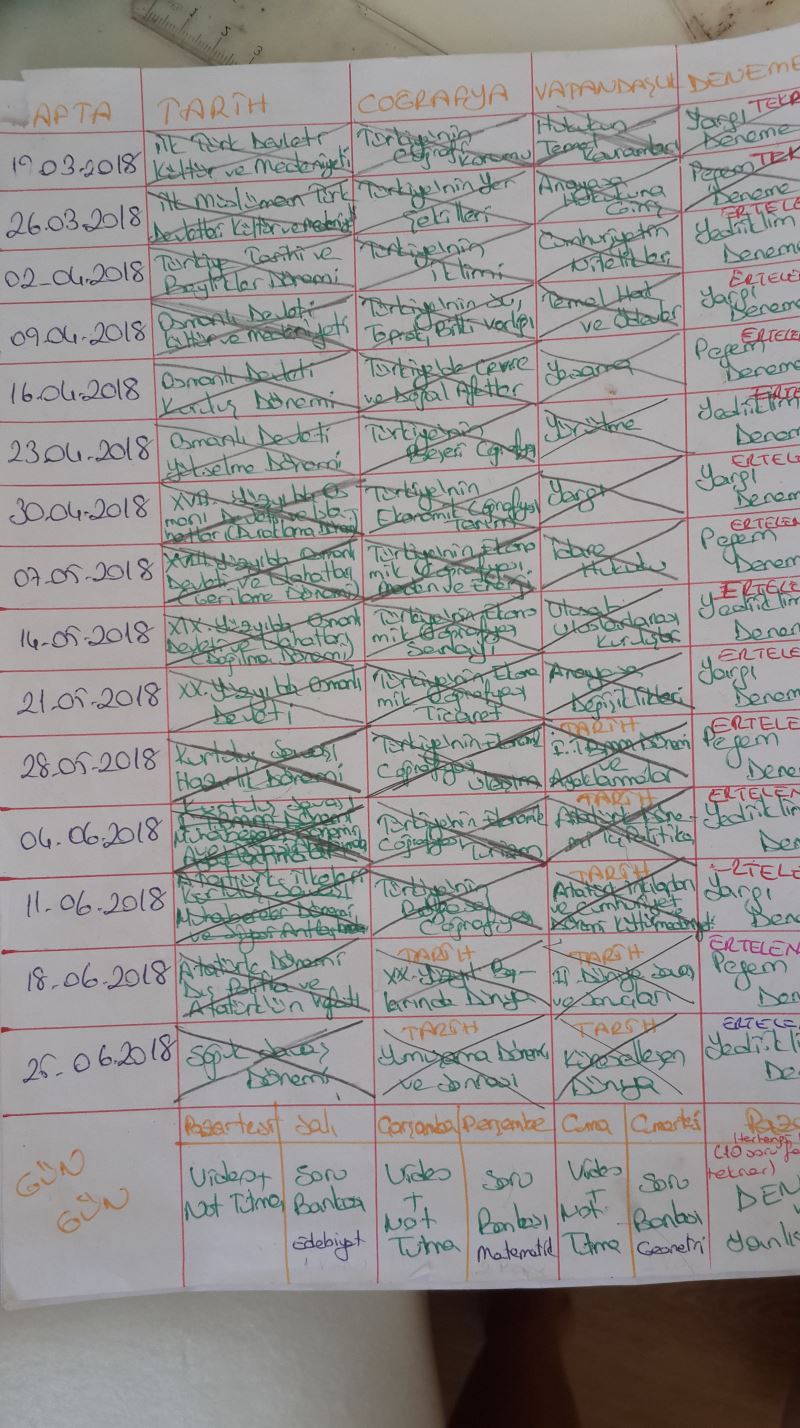 HAFTA TARİH COĞRAFYA VATANDAŞLIK DENEME
19.03.2018
İlk Türk Devletleri
Kültür ve Medeniyeti
Türkiye'nin
Coğrafi Konumu
Hukukun
Temel Kavramları
TEKR
Yargı
Deneme
26.03.2018
İlk Müslüman Türk
Devletleri Kültür ve
Türkiye'nin Yer
Şekilleri
Anayasa
Hukukuna
Giriş
TEK
Pegem
Deneme
02.04.2018
Türkiye Tarihi ve
Beylikler Dönemi
Türkiye'nin
iklimi
Cumhuriyetin
Nitelikleri
ERTELE
Yediiklim
Deneme
09.04.2018
Osmanlı Devleti
Kültür ve medeniyeti
Türkiye'nin Su,
Toprak, Bitki Varlığı
Temel Hak
ve Ödevler
ERTELE
Yargı
Deneme
16.04.2018
Osmanlı Devleti
Kuruluş Dönemi
Türkiye'de Çevre
ve Doğal Afetler
Yasama
ERTELE
Pegem
Deneme
23.04.2018
Osmanlı Devleti
Yükselme Dönemi
Türkiye'nin
Beşeri Coğrafya
Yürütme
ERTE
Yediiklim
Denem
30.04.2018
XVII. Yüzyılda Os
manlı
(Duraklama
Türkiye'nin
Ekonomik Coğrafyası
Tarım
Yargı
ERTELE
Yargı
Denem
07.05.2018
XVIII. Yüzyılda Osmanlı
Devleti ve Islahatları
(Gerileme Dönemi)
Türkiye'nin Ekono
mik Coğrafyası,
Maden ve Enerji
İdare
Hukuku
ERTELE
Pegem
Denem
14.05.2018
XIX. Yüzyılda Osmanlı
Devleti ve Islahatları
(Dağılma Dönemi)
Türkiye'nin Ekono
mik Coğrafyası
Sanayi
Ulusal
Uluslararası
Kuruluşlar
ERTELE
Yediiklim
Denem
21.05.2018
XX. Yüzyılda Osmanlı
Devleti
Türkiye'nin Ekono
mik Coğrafyası
Ticaret
Anayasa
Değişiklikleri
ERTELE
Yargı
Denem
28.05.2018
Kurtuluş Savaşı
Hazırlık Dönemi
Türkiye'nin Ekonomik
Coğrafyası
Ulaşım
TARİH
I. TBMM Dönemi
ve
Ayaklanmalar
ERTELEN
Pegem
Dene
04.06.2018
Kurtuluş Savaşı
Muharebeler Dönemi
Türkiye'nin Ekonomik
Coğrafyası
Turizm
TARİH
Atatürk Döne-
mi İç Politika
ERTELEN
Yediiklim
Den
11.06.2018
Atatürk İlkeleri
Kurtuluş Savaşı
Muharebeler Dönemi
ve
Türkiye'nin
Bölgesel
Coğrafya
TARİH
Atatürk İnkılapları
ve Cumhuriyet
Dönemi
ERTELE
Yargı
Dene
18.06.2018
Atatürk Dönemi
Dış Politika ve
Atatürk'ün Vefatı
TARİH
XX. Yüzyıl Baş-
larında Dünya
TARİH
II. Dünya Savaşı
ve Sonuçları
ERTELEN
Pegem
Den
25.06.2018
Soğuk Savaş
Dönemi
TARİH
Yumuşama Dönemi
ve Sonrası
TARİH
Küreselleşen
Dünya
ERTELE
Yediikli
De
GÜN
GÜN
Pazartesi Salı Çarşamba Perşembe Cuma Cmartesi Paza
Video+
Not Tutma
Soru
Bankası
Edebiyat
Video
+
Not
Tutma
Soru
Bankası
Matematik
Video
+
Not
Tutma
Soru
Bankası
Geometri
(Herhangi
(10 soru
tekrar)
DEN
Yanlış